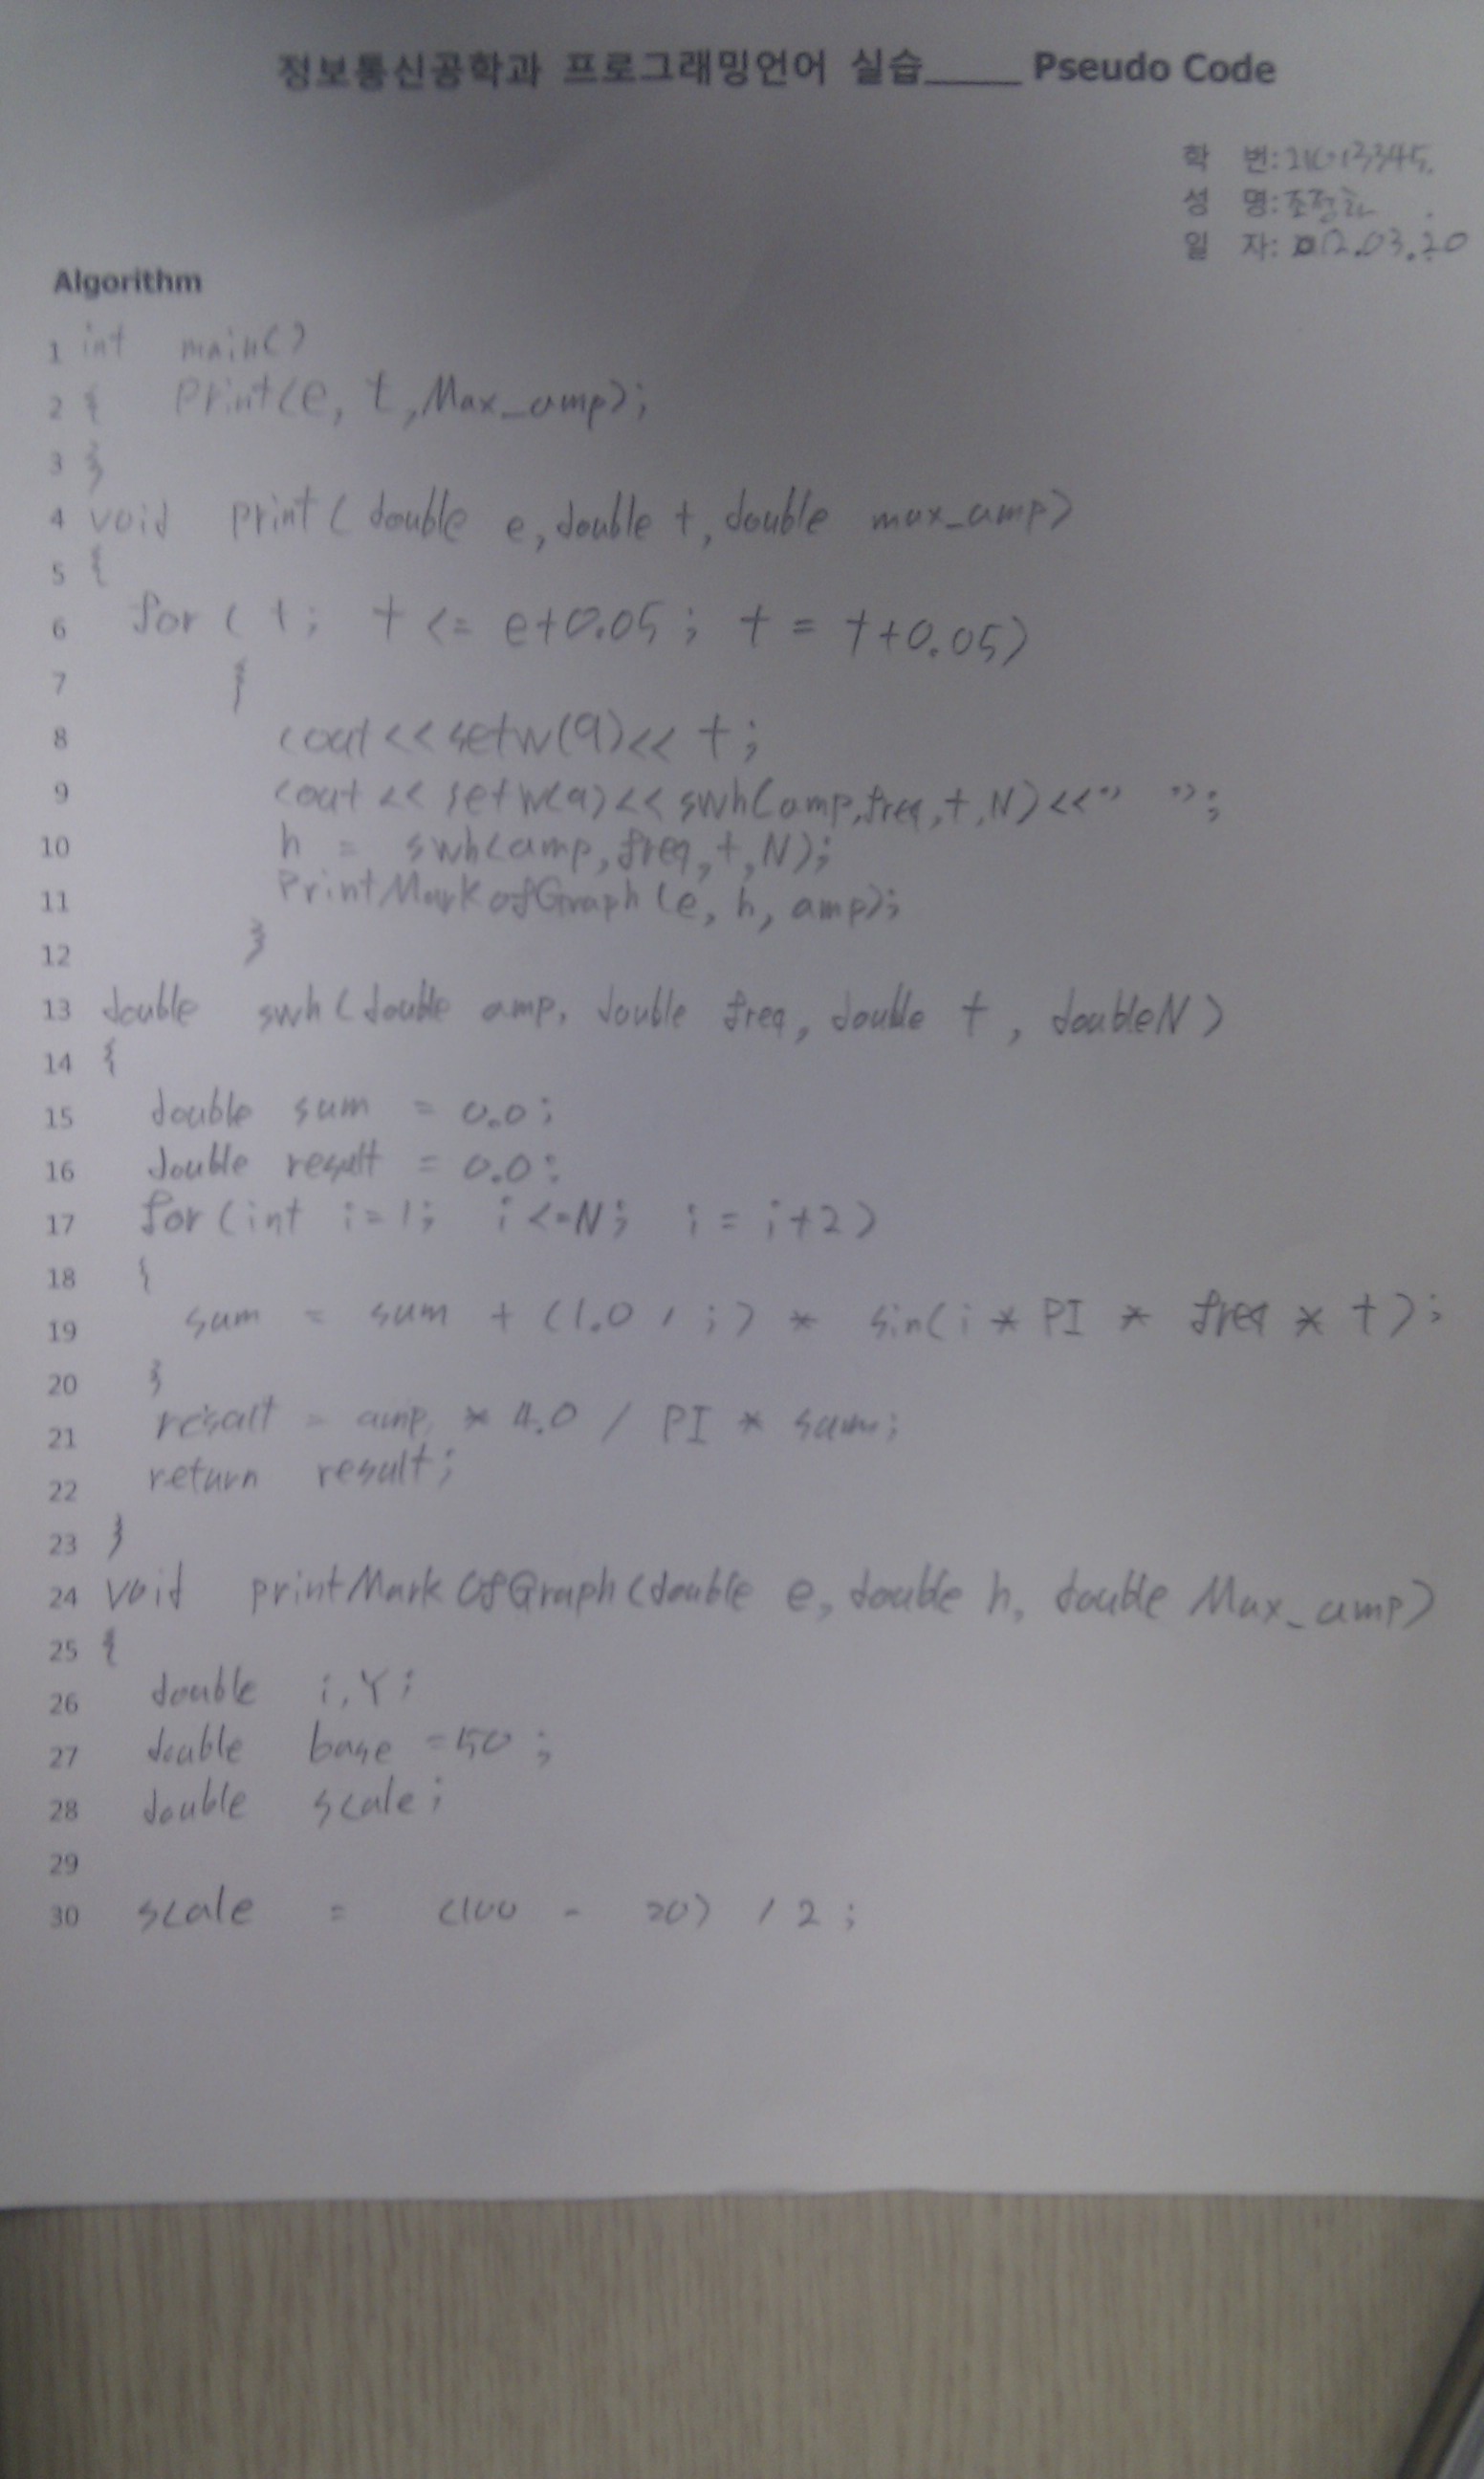 정보통신공학과 프로그래밍언어 실습____ Pseudo Code
학 번:
성 명:조정희
일 자: 2012.03.20
Algorithm
1 int main()
2 { Print(e, t, Max_amp);
3 }
4 void print( double e, double t, double max_amp)
5 {
6 for ( t; t <= e+0.05; t = t+0.05)
7 {
8 cout << setw(9)<< t;
9 cout << setw(9)<< swh(amp, freq, t, N) <<" ";
10 h = swh(amp, freq, t, N);
11 PrintMarkofGraph (e, h, amp);
12 }
13 double swh (double amp, double freq, double t, doubleN)
14 {
15 double sum = 0.0;
16 double result = 0.0;
17 for (int i=1; i<=N; i = i+2)
18 {
19 sum = sum + (1.0 / i) * sin(i * PI * freq * t);
20 }
21 result = amp * 4.0 / PI * sum;
22 return result;
23 }
24 void printMarkOfGraph (double e, double h, double Max_amp)
25 {
26 double i, Y;
27 double base =50;
28 double scale;
29
30 scale = (100 - 20) / 2;